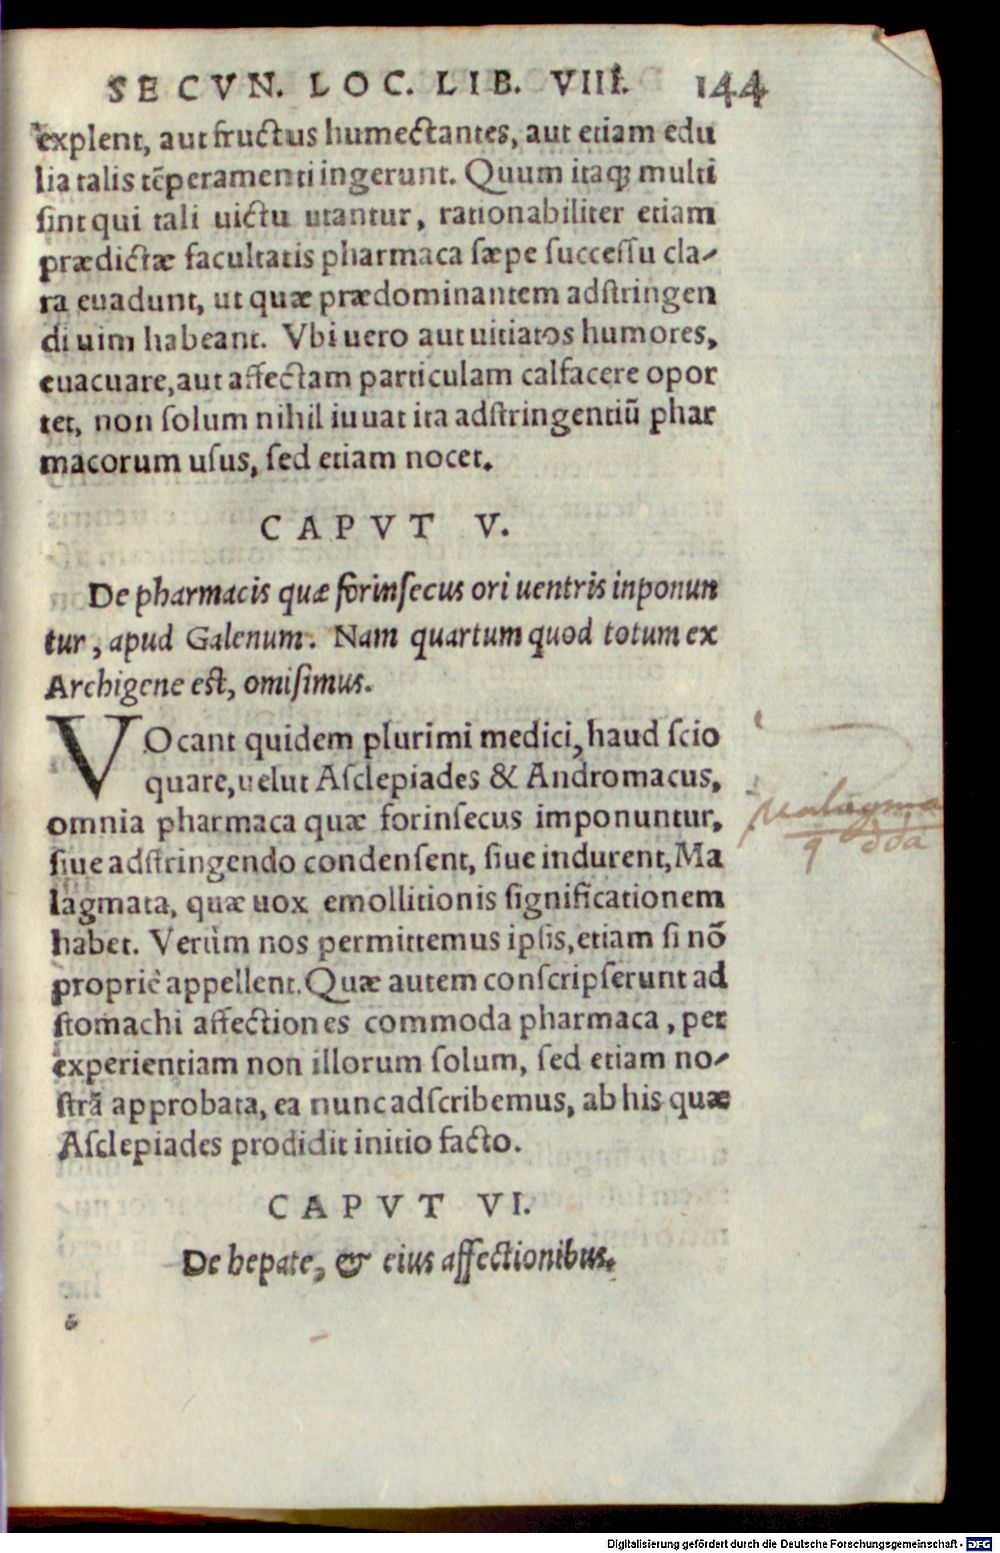 SECVN. LOC. LIB. VIII. 144
explent, aut fructus humectantes, aut etiam edu
lia talis tẽperamenti ingerunt. Quum itaqꝫ multi
ſint qui tali uictu utantur, rationabiliter etiam
prædictæ facultatis pharmaca ſæpe ſucceſſu cla-
ra euadunt, ut quæ prædominantem adſtringen
di uim habeant. Vbi uero aut uitiatos humores,
euacuare, aut affectam particulam calfacere opor
tet, non ſolum nihil iuuat ita adſtringentiũ phar
macorum uſus, ſed etiam nocet.
CAPVT V.
De pharmacis quæ forinſecus ori uentris inponun
tur, apud Galenum. Nam quartum quod totum ex
Archigene est, omiſimus.
VOcant quidem plurimi medici, haud ſcio
quare, uelut Aſclepiades & Andromacus,
omnia pharmaca quæ forinſecus imponuntur,
ſiue adſtringendo condenſent, ſiue indurent, Ma
lagmata, quæ uox emollitionis ſignificationem
habet. Verùm nos permittemus ipſis, etiam ſi nõ
propriè appellent. Quæ autem conſcripſerunt ad
ſtomachi affectiones commoda pharmaca, per
experientiam non illorum ſolum, ſed etiam no-
ſtrã approbata, ea nunc adſcribemus, ab his quæ
Aſclepiades prodidit initio facto.
Malagma
CAPVT VI.
De hepate, & eius affectionibus.
Digitalisierung gefördert durch die Deutsche Forschungsgemeinschaft - DFG